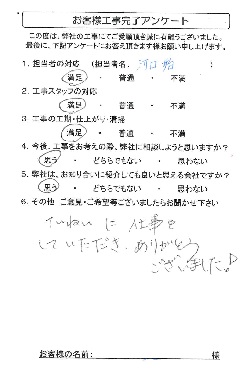 お客様工事完了アンケート
この度は、弊社の工事にてご愛顧頂き誠に有難うございました。
最後に、下記アンケートにお答え頂きます様お願い申し上げます。
1. 担当者の対応 (担当者名、河口 )
満足 ・ 普通 ・ 不満
2. 工事スタッフの対応
満足 ・ 普通 ・ 不満
3. 工事の工期・仕上がり・清掃
満足 ・ 普通 ・ 不満
4. 今後、工事をお考えの際、弊社に相談しようと思いますか？
思う ・ どちらでもない ・ 思わない
5. 弊社は、お知り合いに紹介しても良いと思える会社ですか？
思う ・ どちらでもない ・ 思わない
6. その他 ご意見・ご希望等ございましたらお聞かせ下さい
ていねいに 仕事を
していただき、ありがとう
ございました!
お客様の名前: 様